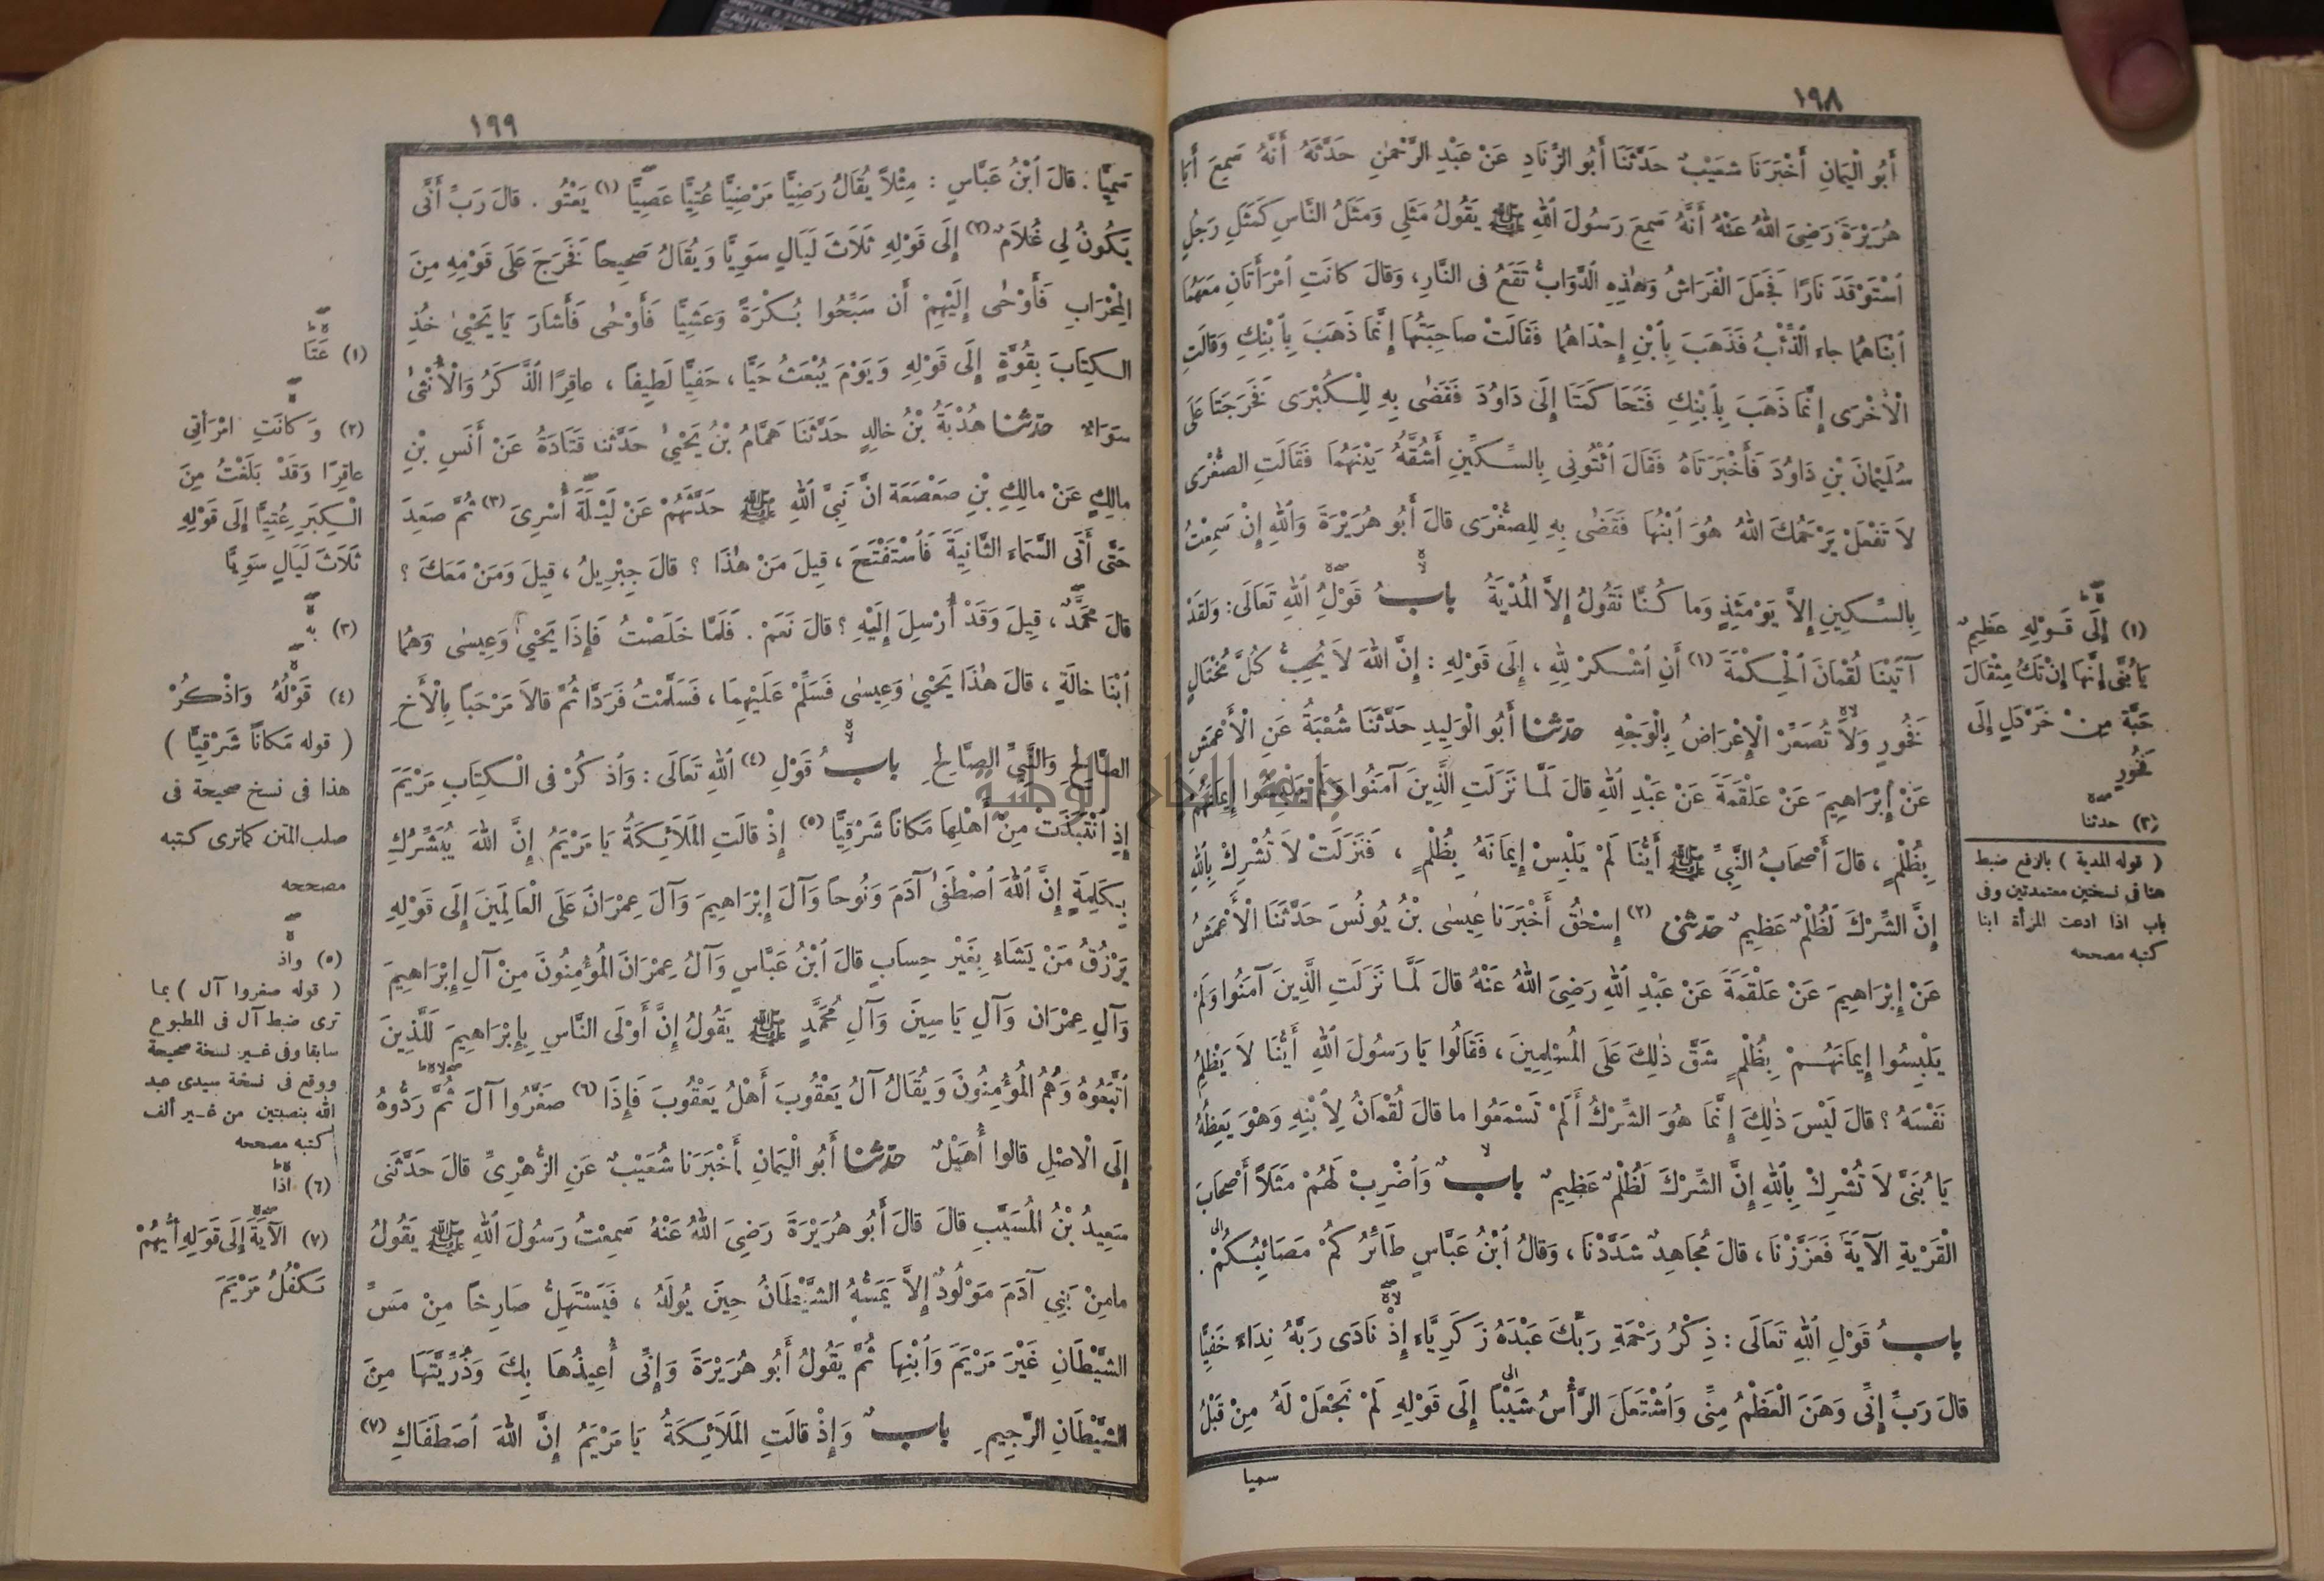 ١٩٨
أَبُو الْيَمَانِ أَخْبَرَنَا شُعَيْبٌ حَدَّثَنَا أَبُو الزِّنَادِ عَنْ عَبْدِ الرَّحْمٰنِ حَدَّثَهُ أَنَّهُ سَمِعَ أَبَا
هُرَيْرَةَ رَضِيَ اللهُ عَنْهُ أَنَّهُ سَمِعَ رَسُولَ اللهِ ﷺ يَقُولُ مَثَلِي وَمَثَلُ النَّاسِ كَمَثَلِ رَجُلٍ
اسْتَوْقَدَ نَارًا فَجَعَلَ الْفَرَاشُ وَهٰذِهِ الدَّوَابُّ تَقَعُ فِى النَّارِ، وَقَالَ كَانَتِ امْرَأَتَانِ مَعَهُمَا
ابْنَاهُمَا جاء الذِّئْبُ فَذَهَبَ بِابْنِ إِحْدَاهُمَا فَقَالَتْ صَاحِبَتُهَا إِنَّمَا ذَهَبَ بِابْنِكِ وَقَالَتِ
الْأُخْرَى إِنَّمَا ذَهَبَ بِابْنِكِ فَتَحَا كَمَتَا إِلَى دَاوُدَ فَقَضَى بِهِ لِلْكُبْرَى فَخَرَجَتَا عَلَى
سُلَيْمَانَ بْنِ دَاوُدَ فَأَخْبَرَتَاهُ فَقَالَ ائْتُونِى بِالسِّكِّينِ أَشُقُّهُ بَيْنَهُمَا فَقَالَتِ الصُّغْرَى
لاَ تَفْعَلْ يَرْحَمُكَ اللهُ هُوَ ابْنُهَا فَقَضَى بِهِ لِلصُّغْرَى قالَ أَبُو هُرَيْرَةَ وَاللهِ إِنْ سَمِعْتُ
بِالسِّكِينِ إِلاَّ يَوْمَئِذٍ وَما كُنَّا نَقُولُ إِلاَّ المُدْيَةُ بابُ قَوْلُِ اللهِ تَعَالَى: وَلَقَدْ
آتَيْنَا لُقْمَانَ الْحِكْمَةَ (١) أَنِ اشْكُرْ لِلهِ، إِلَى قَوْلِهِ: إِنَّ اللهَ لاَ يُحِبُّ كُلَّ مُخْتَالٍ
فَخُورٍ وَلاَ تُصَعِّرْ الْإِعْرَاضُ بِالْوَجْهِ حدثنا أَبُو الْوَلِيدِ حَدَّثَنَا شُعْبَةُ عَنِ الْأَعْمَشِ
عَنْ إِبْرَاهِيمَ عَنْ عَلْقَمَةَ عَنْ عَبْدِ اللهِ قالَ لَمَّا نَزَلَتِ الَّذِينَ آمَنُوا وَلَمْ يَلْبِسُوا إِيمَانَهُمْ
بِظُلْمٍ، قالَ أَصْحَابُ النَّبِيِّ ﷺ أَيُّنَا لَمْ يَلْبِسْ إِيمَانَهُ بِظُلْمٍ، فَنَزَلَتْ لاَ تُشْرِكْ بِاللهِ
إِنَّ الشِّرْكَ لَظُلْمٌ عَظِيمٌ حدثنى (٢) إِسْحٰقُ أَخْبَرَنَا عِيسَى بْنُ يُونُسَ حَدَّثَنَا الْأَعْمَشُ
عَنْ إِبْرَاهِيمَ عَنْ عَلْقَمَةَ عَنْ عَبْدِ اللهِ رَضِيَ اللهُ عَنْهُ قالَ لَمَّا نَزَلَتِ الَّذِينَ آمَنُوا وَلَمْ
يَلْبِسُوا إِيمَانَهُمْ بِظُلْمٍ شَقَّ ذٰلِكَ عَلَى المُسْلِمِينَ، فَقَالُوا يَا رَسُولَ اللهِ أَيُّنَا لاَ يَظْلِمُ
نَفْسَهُ؟ قالَ لَيْسَ ذٰلِكَ إِنَّمَا هُوَ الشِّرْكُ أَلَمْ تَسْمَعُوا ما قالَ لُقْمَانُ لِابْنِهِ وَهْوَ يَعِظُهُ
يَا بُنَىَّ لاَ تُشْرِكْ بِاللهِ إِنَّ الشِّرْكَ لَظُلْمٌ عَظِيمٌ بابٌ وَاضْرِبْ لَهُمْ مَثَلاً أَصْحَابَ
الْقَرْيَةِ الآيَةَ فَعَزَّزْنَا، قالَ مُجَاهِدٌ شَدَّدْنَا، وَقالُ ابْنُ عَبَّاسٍ طَائِرُكُمْ مَصَائِبُكُمْ.
بابُ قَوْلِ اللهِ تَعَالَى: ذِكْرُ رَحْمَةِ رَبِّكَ عَبْدَهُ زَكَرِيَّاء إِذْ نَادَى رَبَّهُ نِدَاءً خَفِيًّا
قالَ رَبِّ إِنِّى وَهَنَ الْعَظْمُ مِنِّى وَاشْتَعَلَ الرَّأْسُ شَيْبًا إِلَى قَوْلِهِ لَمْ نَجْعَلْ لَهُ مِنْ قَبْلُ
سميا
(١) إِلَى قَوْلِهِ عَظِيمٌ
يَا بُنَىَّ إِنَّهَا إِنْ تَكُ مِثْقَالَ
حَبَّةٍ مِنْ خَرْدَلٍ إِلَى
فَخُورٍ
(٢) حدثنا
( قوله المدية ) بالرفع ضبط
هنا فى نسختين معتمدتين وفى
باب اذا ادعت المرأة ابنا
كتبه مصححه
١٩٩
سَمِيًّا. قالَ ابْنُ عَبَّاسٍ: مِثْلاً يُقَالُ رَضِيًّا مَرْضِيًّا عُتِيًّا عَصِيًّا (١) يَعْتُو. قالَ رَبِّ أَنَّى
يَكُونُ لِي غُلاَمٌ (٢) إِلَى قَوْلِهِ ثَلاَثَ لَيَالٍ سَوِيًّا وَيُقَالُ صَحِيحاً فَخَرَجَ عَلَى قَوْمِهِ مِنَ
الْمِحْرَابِ فَأَوْحٰى إِلَيْهِمْ أَن سَبِّحُوا بُكْرَةً وَعَشِيًّا فَأَوْحٰى فَأَشَارَ يَا يَحْيىٰ خُذِ
الكِتَابَ بِقُوَّةٍ إِلَى قَوْلِهِ وَيَوْمَ يُبْعَثُ حَيًّا، حَفِيًّا لَطِيفاً، عاقِرًا الذَّكَرُ وَالْأُنْثٰى
سَوَاءٌ حدثنا هُدْبَةُ بْنُ خالِدٍ حَدَّثَنَا هَمَّامُ بْنُ يَحْيىٰ حَدَّثنا قَتَادَةُ عَنْ أَنَسِ بْنِ
مالِكٍ عَنْ مالِكِ بْنِ صَعْصَعَةَ انَّ نَبِيَّ اللهِ ﷺ حَدَّثَهُمْ عَنْ لَيْلَةَ أُسْرِىَ (٣) ثُمَّ صَعِدَ
حَتَّى أَتَى السَّمَاءَ الثَّانِيَةَ فَاسْتَفْتَحَ، قِيلَ مَنْ هٰذَا؟ قالَ جِبْرِيلُ، قِيلَ وَمَنْ مَعَكَ؟
قالَ مُحَمَّدٌ، قِيلَ وَقَدْ أُرْسِلَ إِلَيْهِ؟ قالَ نَعَمْ. فَلَمَّا خَلَصْتُ فَإِذَا يَحْيىٰ وَعِيسٰى وَهُمَا
ابْنَا خالَةٍ، قالَ هٰذَا يَحْيىٰ وَعِيسٰى فَسَلِّمْ عَلَيْهِمَا، فَسَلَّمْتُ فَرَدَّا ثُمَّ قالاَ مَرْحَباً بِالْأَخِ
الصَّالِحِ وَالنَّبِيِّ الصَّالِحِ بابُ قَوْلِ (٤) اللهِ تَعَالَى: وَاذكُرْ فى الْكِتَابِ مَرْيَمَ
إِذِ انْتَبَذَتْ مِنْ أَهْلِهَا مَكاناً شَرْقِيًّا (٥) إِذْ قالَتِ المَلاَئِكَةُ يَا مَرْيَمُ إِنَّ اللهَ يُبَشِّرُكِ
بِكَلِمَةٍ إِنَّ اللهَ اصْطَفٰى آدَمَ وَنُوحاً وَآلَ إِبْرَاهِيمَ وَآلَ عِمْرَانَ عَلَى الْعَالَمِينَ إِلَى قَوْلِهِ
يَرْزُقُ مَنْ يَشَاءُ بِغَيْرِ حِسابٍ قالَ ابْنُ عَبَّاسٍ وَآلُ عِمْرَانَ المُؤْمِنُونَ مِنْ آلِ إِبْرَاهِيمَ
وَآلِ عِمْرَان وَآلِ يَاسِينَ وَآلِ مُحَمَّدٍ ﷺ يَقُولُ إِنَّ أَوْلَى النَّاسِ بِإِبْرَاهِيمَ لَلَّذِينَ
اتَّبَعُوهُ وَهُمُ المُؤْمِنُونَ وَيُقَالُ آلُ يَعْقُوبَ أَهْلُ يَعْقُوبَ فَإِذَا (٦) صَغَّرُوا آلَ ثُمَّ رَدُّوهُ
إِلَى الْاصْلِ قالُوا أُهَيْلٌ حدثنا أَبُو الْيَمَانِ أَخْبَرَنا شُعَيْبٌ عَنِ الزُّهْرِىِّ قالَ حَدَّثَنى
سَعِيدُ بْنُ الْمُسَيَّبِ قالَ قالَ أَبُو هُرَيْرَةَ رَضِيَ اللهُ عَنْهُ سَمِعْتُ رَسُولَ اللهِ ﷺ يَقُولُ
مامِنْ بَنِي آدَمَ مَوْلُودٌ إِلاَّ يَمَسُّهُ الشَّيْطَانُ حِينَ يُولَدُ، فَيَسْتَهِلُّ صَارِخاً مِنْ مَسِّ
الشَّيْطَانِ غَيْرَ مَرْيَمَ وَابْنِهَا ثُمَّ يَقُولُ أَبُو هُرَيْرَةَ وَإِنِّى أُعِيذُهَا بِكَ وَذُرِّيَّتَهَا مِنَ
الشَّيْطَانِ الرَّجِيمِ بابٌ وَإِذْ قالَتِ المَلاَئِكَةُ يَا مَرْيَمُ إِنَّ اللهَ اصْطَفَاكِ (٧)
(١) عَتَا
(٢) وَكَانَتِ امْرَأَتِي
عاقِرًا وَقَدْ بَلَغْتُ مِنَ
الْكِبَرِ عِتِيًّا إِلَى قَوْلِهِ
ثَلاَثَ لَيَالٍ سَوِيًّا
(٣) به
(٤) قَوْلُهُ وَاذْكُرْ
( قوله مَكاناً شَرْقِيًّا )
هذا فى نسخ صحيحة فى
صلب المتن كما ترى كتبه
مصححه
(٥) واذ
( قوله صغروا آل ) بما
ترى ضبط آل فى المطبوع
سابقا وفى غير نسخة صحيحة
ووقع فى نسخة سيدى عبد
الله بنصبتين من غير ألف
كتبه مصححه
(٦) اذا
(٧) الآيَةَ إِلَى قَوْلِهِ أَيُّهُمْ
يَكْفُلُ مَرْيَمَ